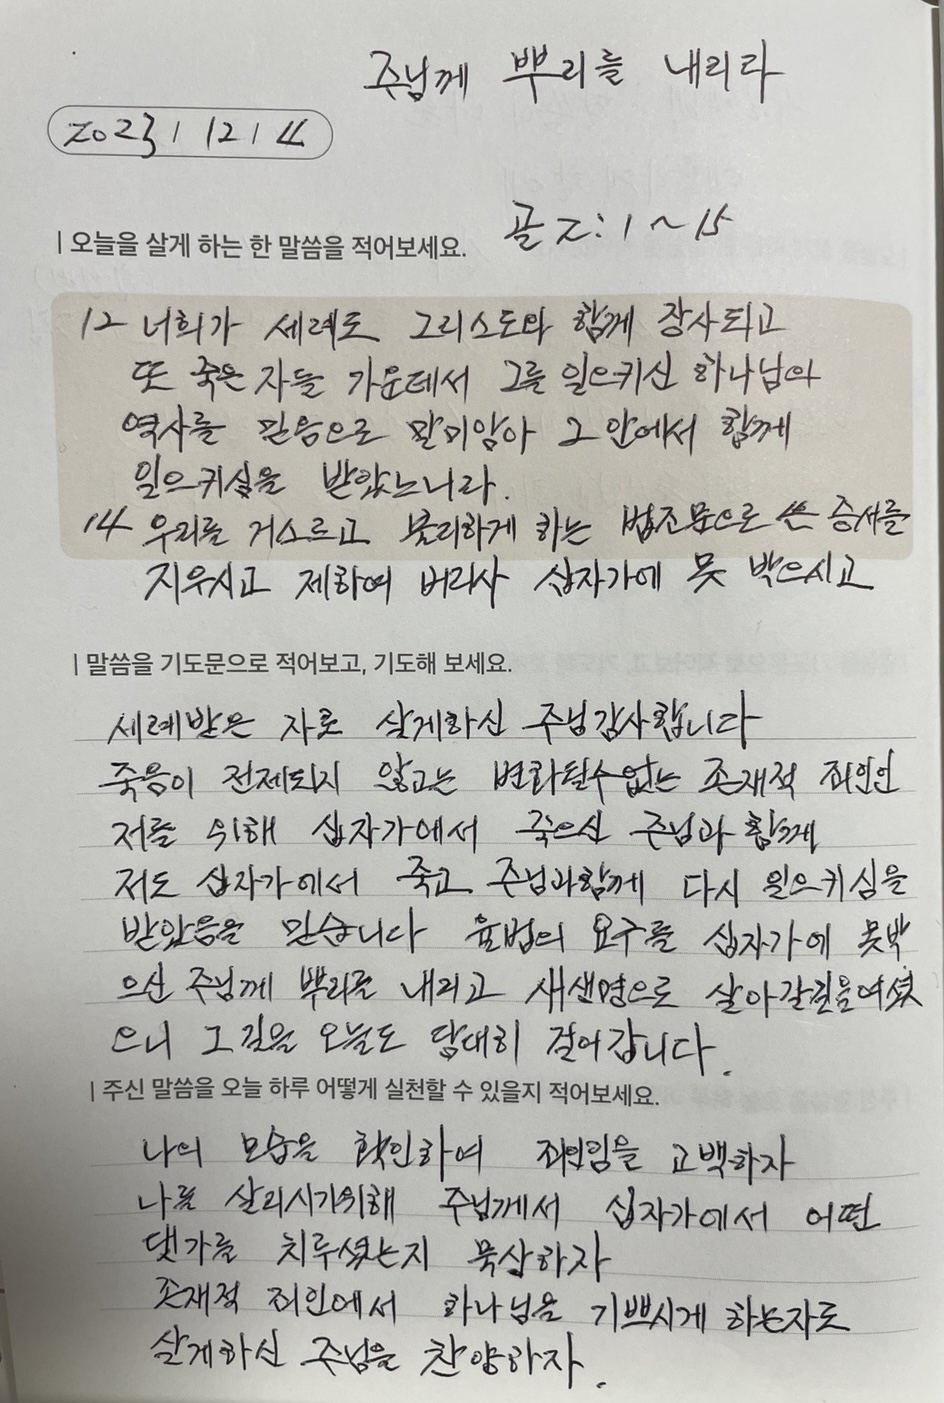 주님께 뿌리를 내리라
2023 / 12 / 4
골 2:1~15
| 오늘을 살게 하는 한 말씀을 적어보세요.
12 너희가 세례로 그리스도와 함께 장사되고
또 죽은 자들 가운데서 그를 일으키신 하나님의
역사를 믿음으로 말미암아 그 안에서 함께
일으키심을 받았느니라.
14 우리를 거스르고 불리하게 하는 법조문으로 쓴 증서를
지우시고 제하여 버리사 십자가에 못 박으시고
| 말씀을 기도문으로 적어보고, 기도해 보세요.
세례받은 자로 살게하신 주님감사합니다
죽음이 전제되지 않고는 변화될수없는 존재적 죄인인
저를 위해 십자가에서 죽으신 주님과 함께
저도 십자가에서 죽고 주님과함께 다시 일으키심을
받았음을 믿습니다 율법의 요구를 십자가에 못박
으신 주님께 뿌리를 내리고 새생명으로 살아갈길을여셨
으니 그 길을 오늘도 담대히 걸어갑니다.
| 주신 말씀을 오늘 하루 어떻게 실천할 수 있을지 적어보세요.
나의 모습을 확인하여 죄인임을 고백하자
나를 살리시기위해 주님께서 십자가에서 어떤
댓가를 치루셨는지 묵상하자
존재적 죄인에서 하나님을 기쁘시게 하는자로
살게하신 주님을 찬양하자.